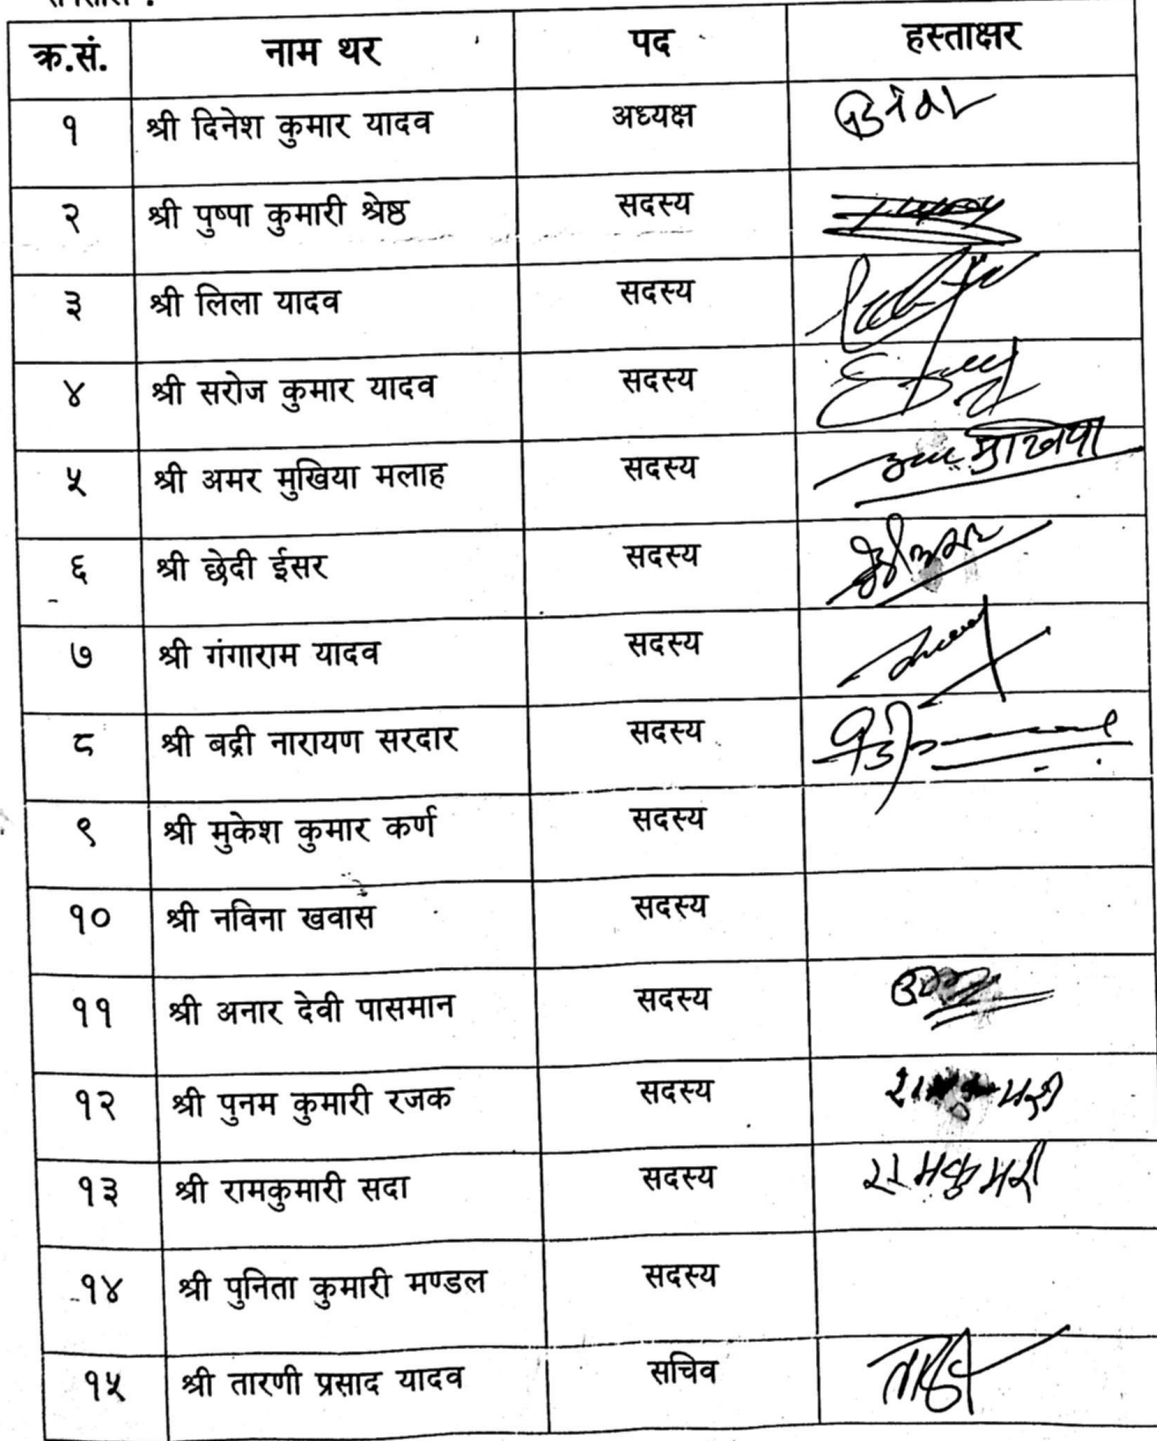 क्र.सं. नाम थर पद हस्ताक्षर
१ श्री दिनेश कुमार यादव अध्यक्ष
२ श्री पुष्पा कुमारी श्रेष्ठ सदस्य
३ श्री लिला यादव सदस्य
४ श्री सरोज कुमार यादव सदस्य
५ श्री अमर मुखिया मलाह सदस्य
६ श्री छेदी ईसर सदस्य
७ श्री गंगाराम यादव सदस्य
८ श्री बद्री नारायण सरदार सदस्य
९ श्री मुकेश कुमार कर्ण सदस्य
१० श्री नविना खवास सदस्य
११ श्री अनार देवी पासमान सदस्य
१२ श्री पुनम कुमारी रजक सदस्य
१३ श्री रामकुमारी सदा सदस्य रामकुमरी
१४ श्री पुनिता कुमारी मण्डल सदस्य
१५ श्री तारणी प्रसाद यादव सचिव